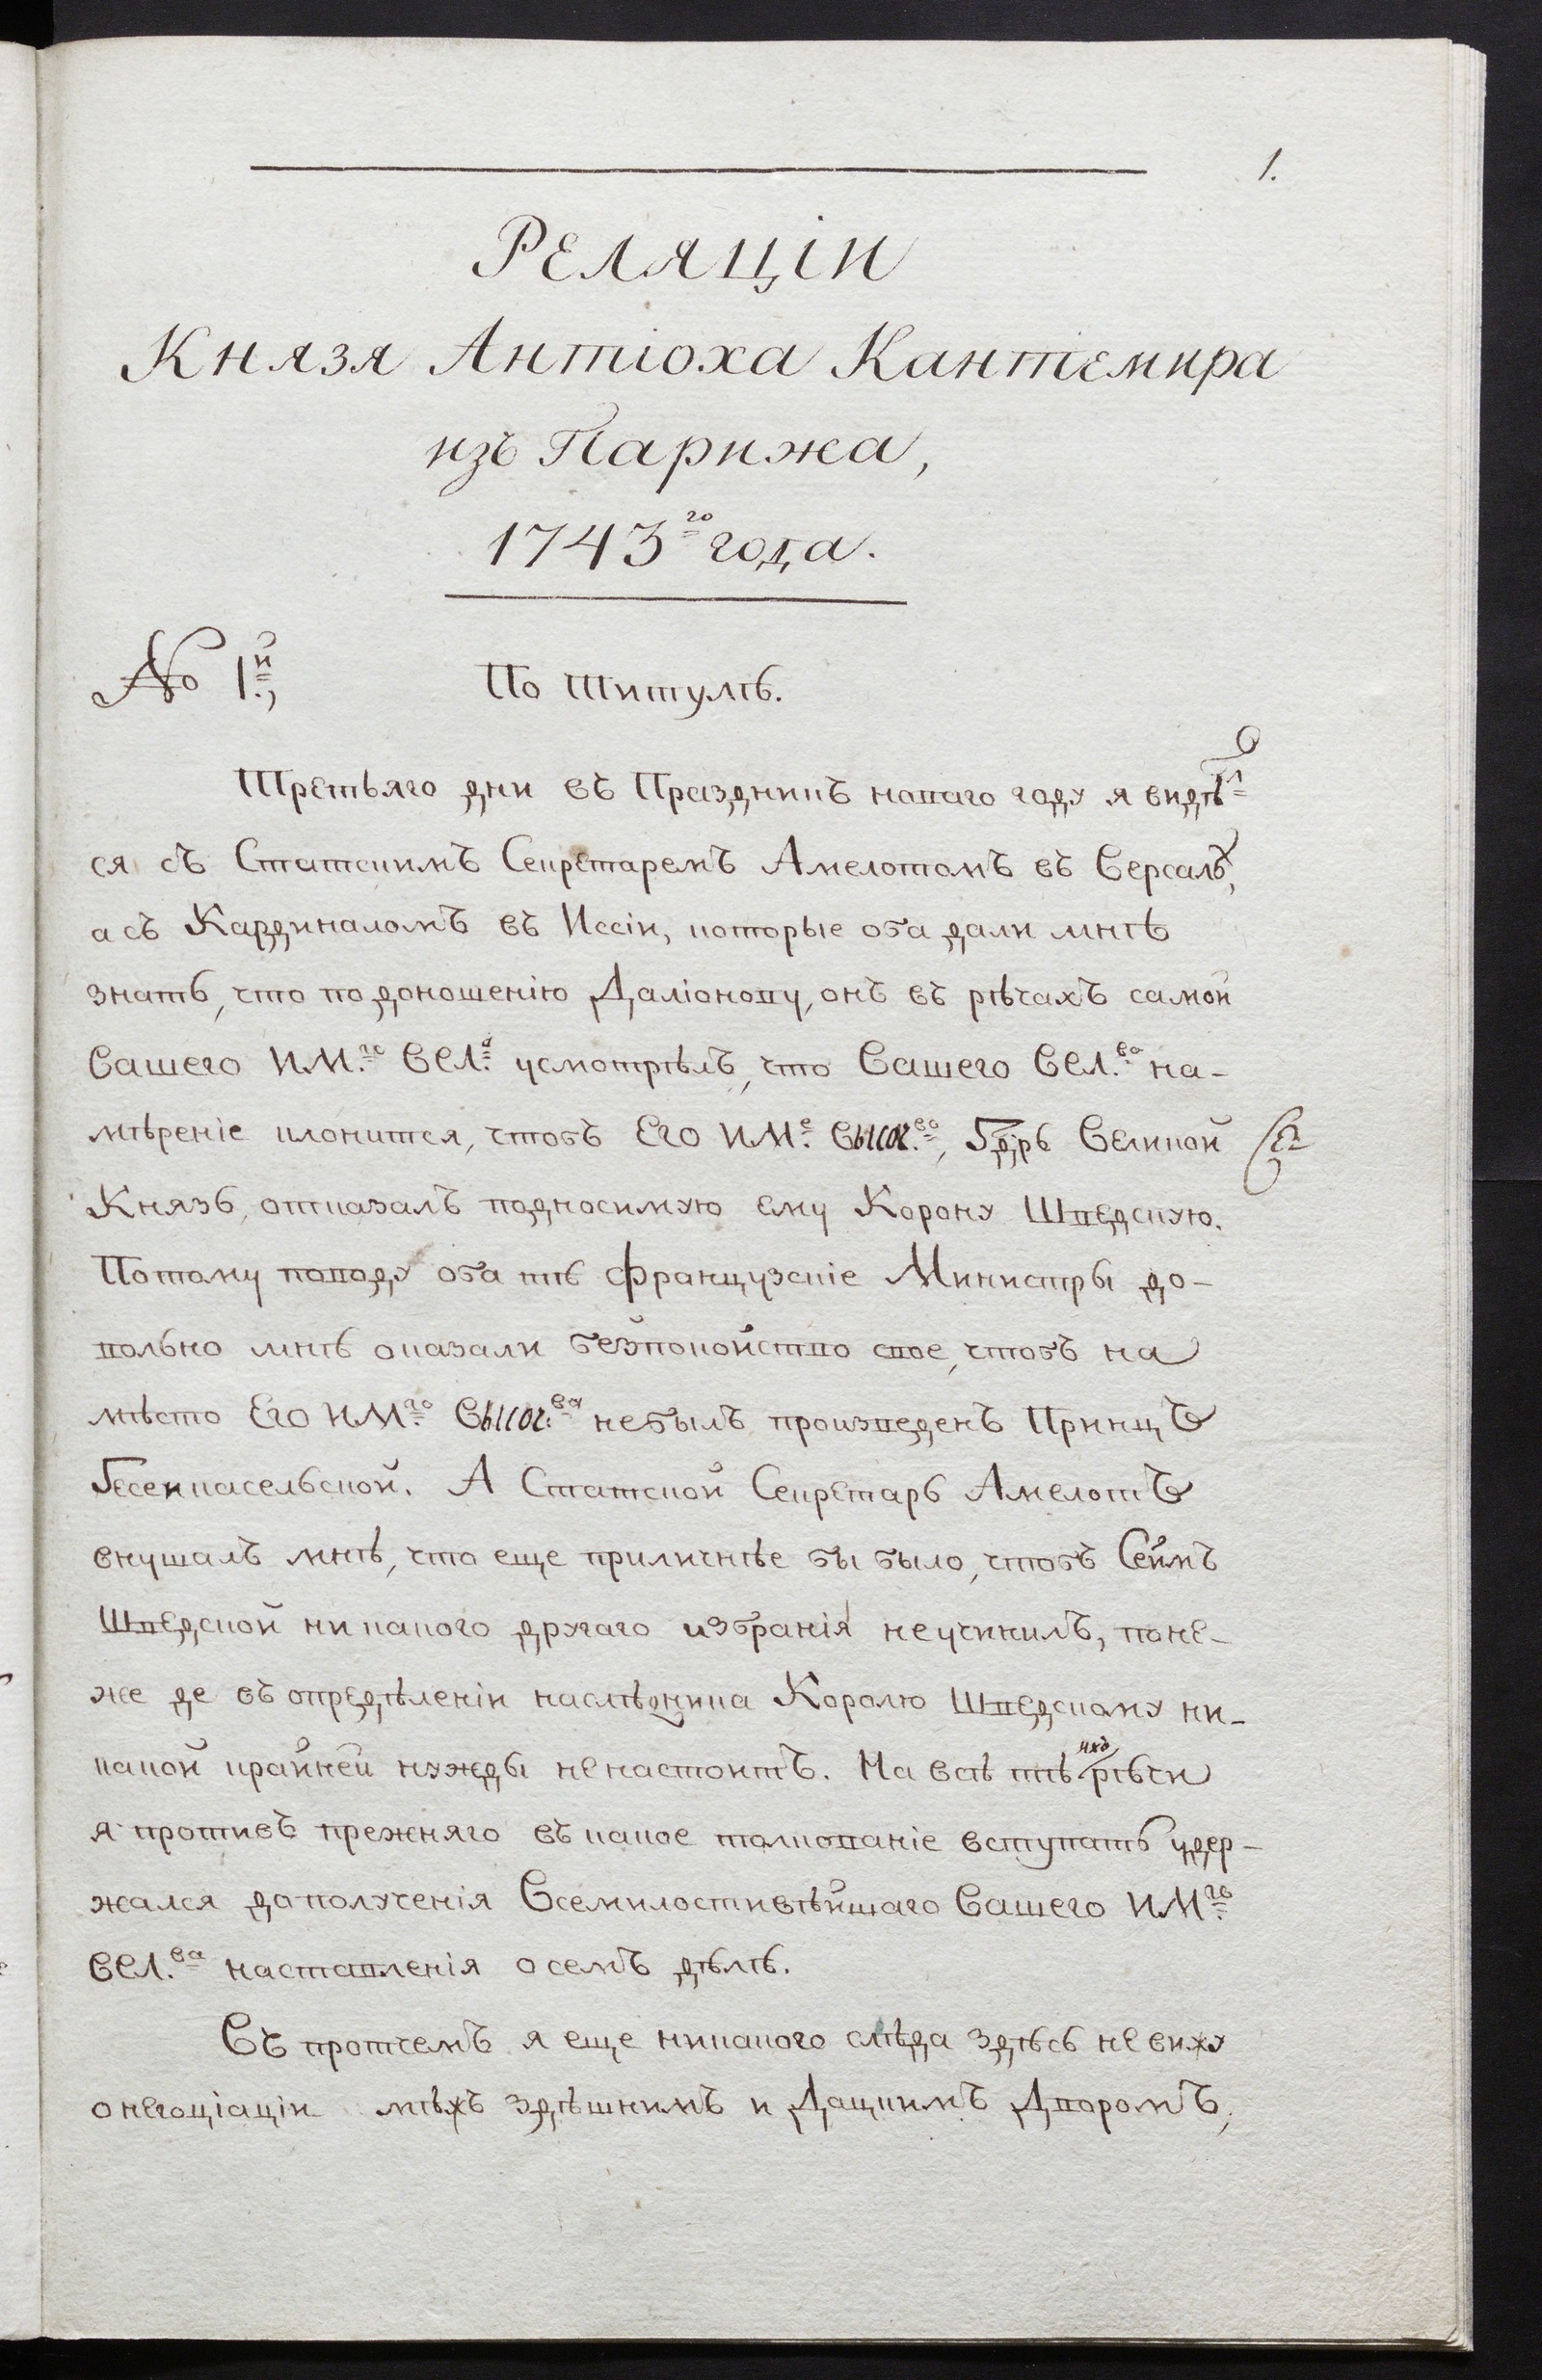 1.
Реляціи
Князя Антіоха Кантемира
изъ Парижа,
1743го года.
No 1.й,
По титулѣ.
Третьяго дни въ Праздникъ новаго году я видѣл
ся съ Статскимъ Секретаремъ Амелотомъ въ Версалѣ,
а съ Кардиналомъ въ Иссіи, которые оба дали мнѣ
знать, что по доношенію Даліонову, онъ въ рѣчахъ самой
Вашего ИМ.го ВЕЛ.а усмотрѣлъ, что Вашего ВЕЛ.ва на-
мѣреніе клонится, чтобъ Его ИМ.е Высоч.во, Гдрь Великой
Князь, отказалъ подносимую ему Корону Шведскую.
Потому поводу оба тѣ французскіе Министры до-
вольно мнѣ оказали безпокойство свое, чтобъ на
мѣсто Его ИМ.го Высоч.ва небылъ произведенъ Принцъ
Гесенкасельской. А Статской Секретарь Амелотъ
внушалъ мнѣ, что еще приличнѣе бы было, чтобъ Сеймъ
Шведской никакого другаго избранія неучинилъ, поне-
же де въ опредѣленіи наслѣдника Королю Шведскому ни-
какой крайней нужды ненастоитъ. На всѣ тѣ ихъ рѣчи
я противъ прежняго въ какое толкованіе вступать удер-
жался дополученія Всемилостивѣйшаго Вашего ИМ.го
ВЕЛ.ва наставленія о семъ дѣлѣ.
Въ протчемъ я еще никакого слѣда здѣсь не вижу
о негоціаціи мѣжъ здѣшнимъ и Дацкимъ Дворомъ,